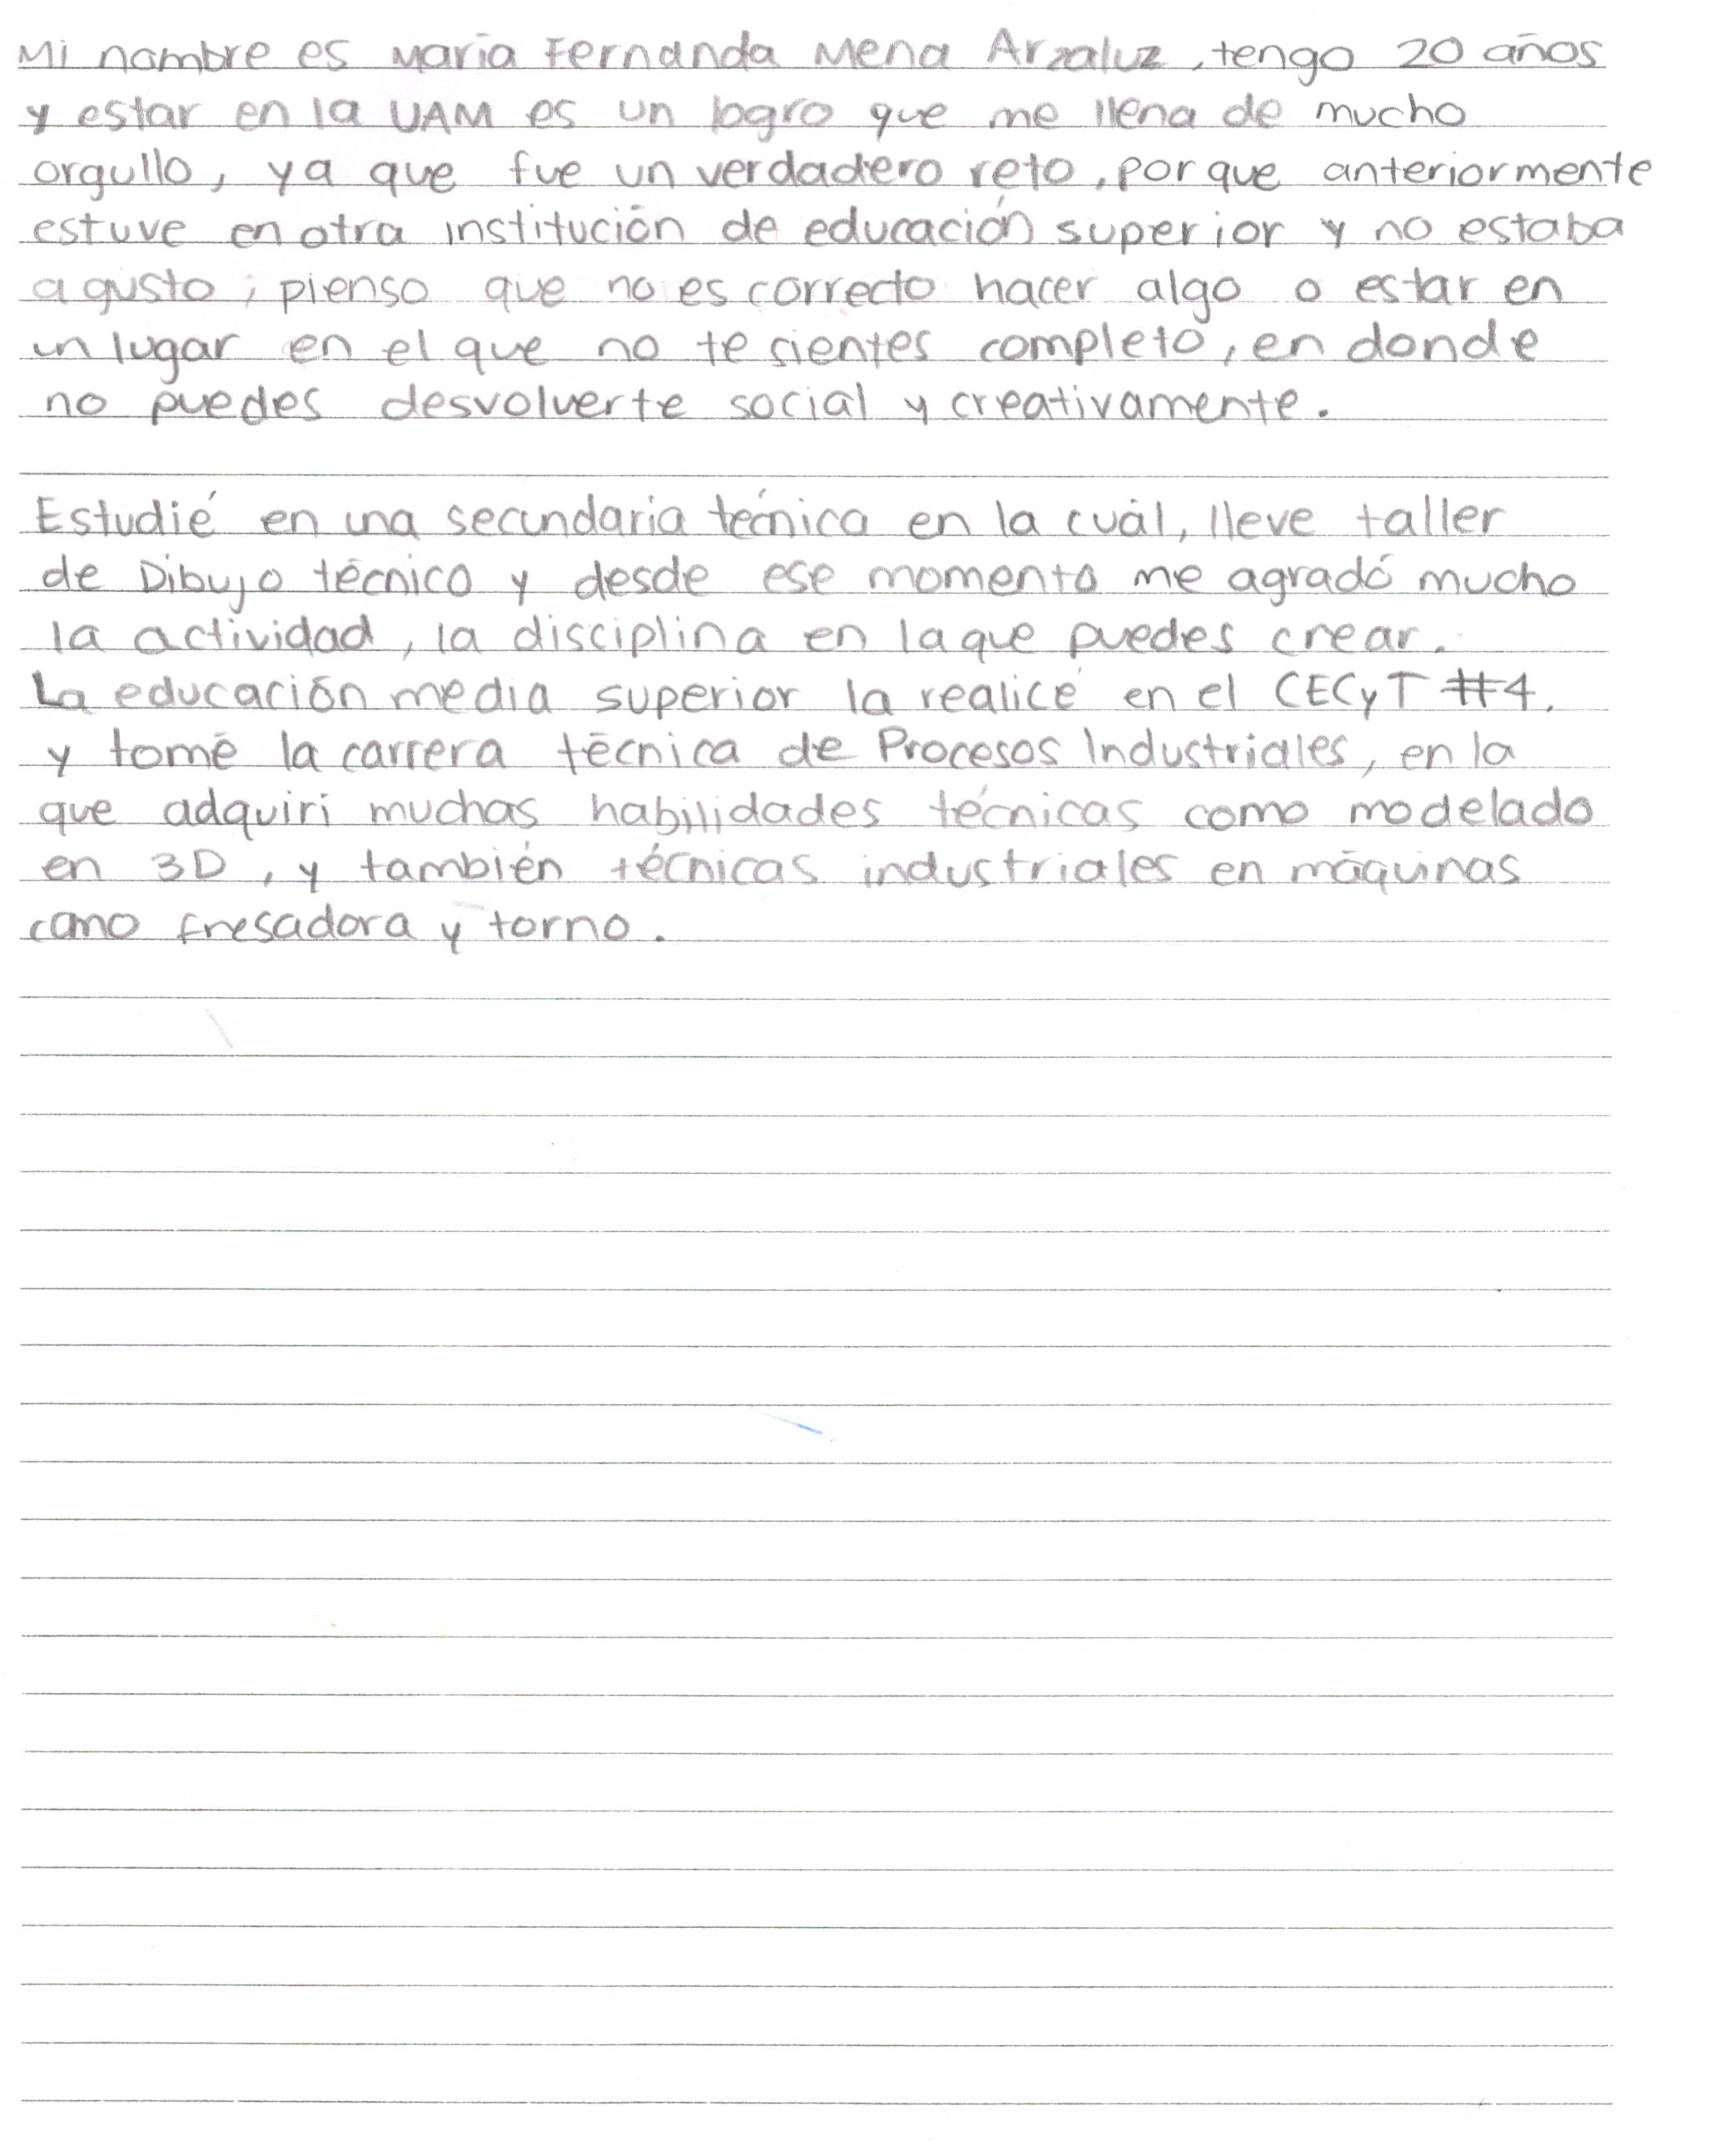 Mi nombre es María Fernanda Mena Arzaluz, tengo 20 años
y estar en la UAM es un logro que me llena de mucho
orgullo, ya que fue un verdadero reto, porque anteriormente
estuve en otra institución de educación superior y no estaba
agusto; pienso que no es correcto hacer algo o estar en
un lugar en el que no te sientes completo, en donde
no puedes desvolverte social y creativamente.
Estudié en una secundaria técnica en la cuál, lleve taller
de Dibujo técnico y desde ese momento me agradó mucho
la actividad, la disciplina en la que puedes crear.
La educación media superior la realicé en el CECyT #4,
y tomé la carrera técnica de Procesos Industriales, en la
que adquiri muchas habilidades técnicas como modelado
en 3D, y también técnicas industriales en máquinas
como fresadora y torno.